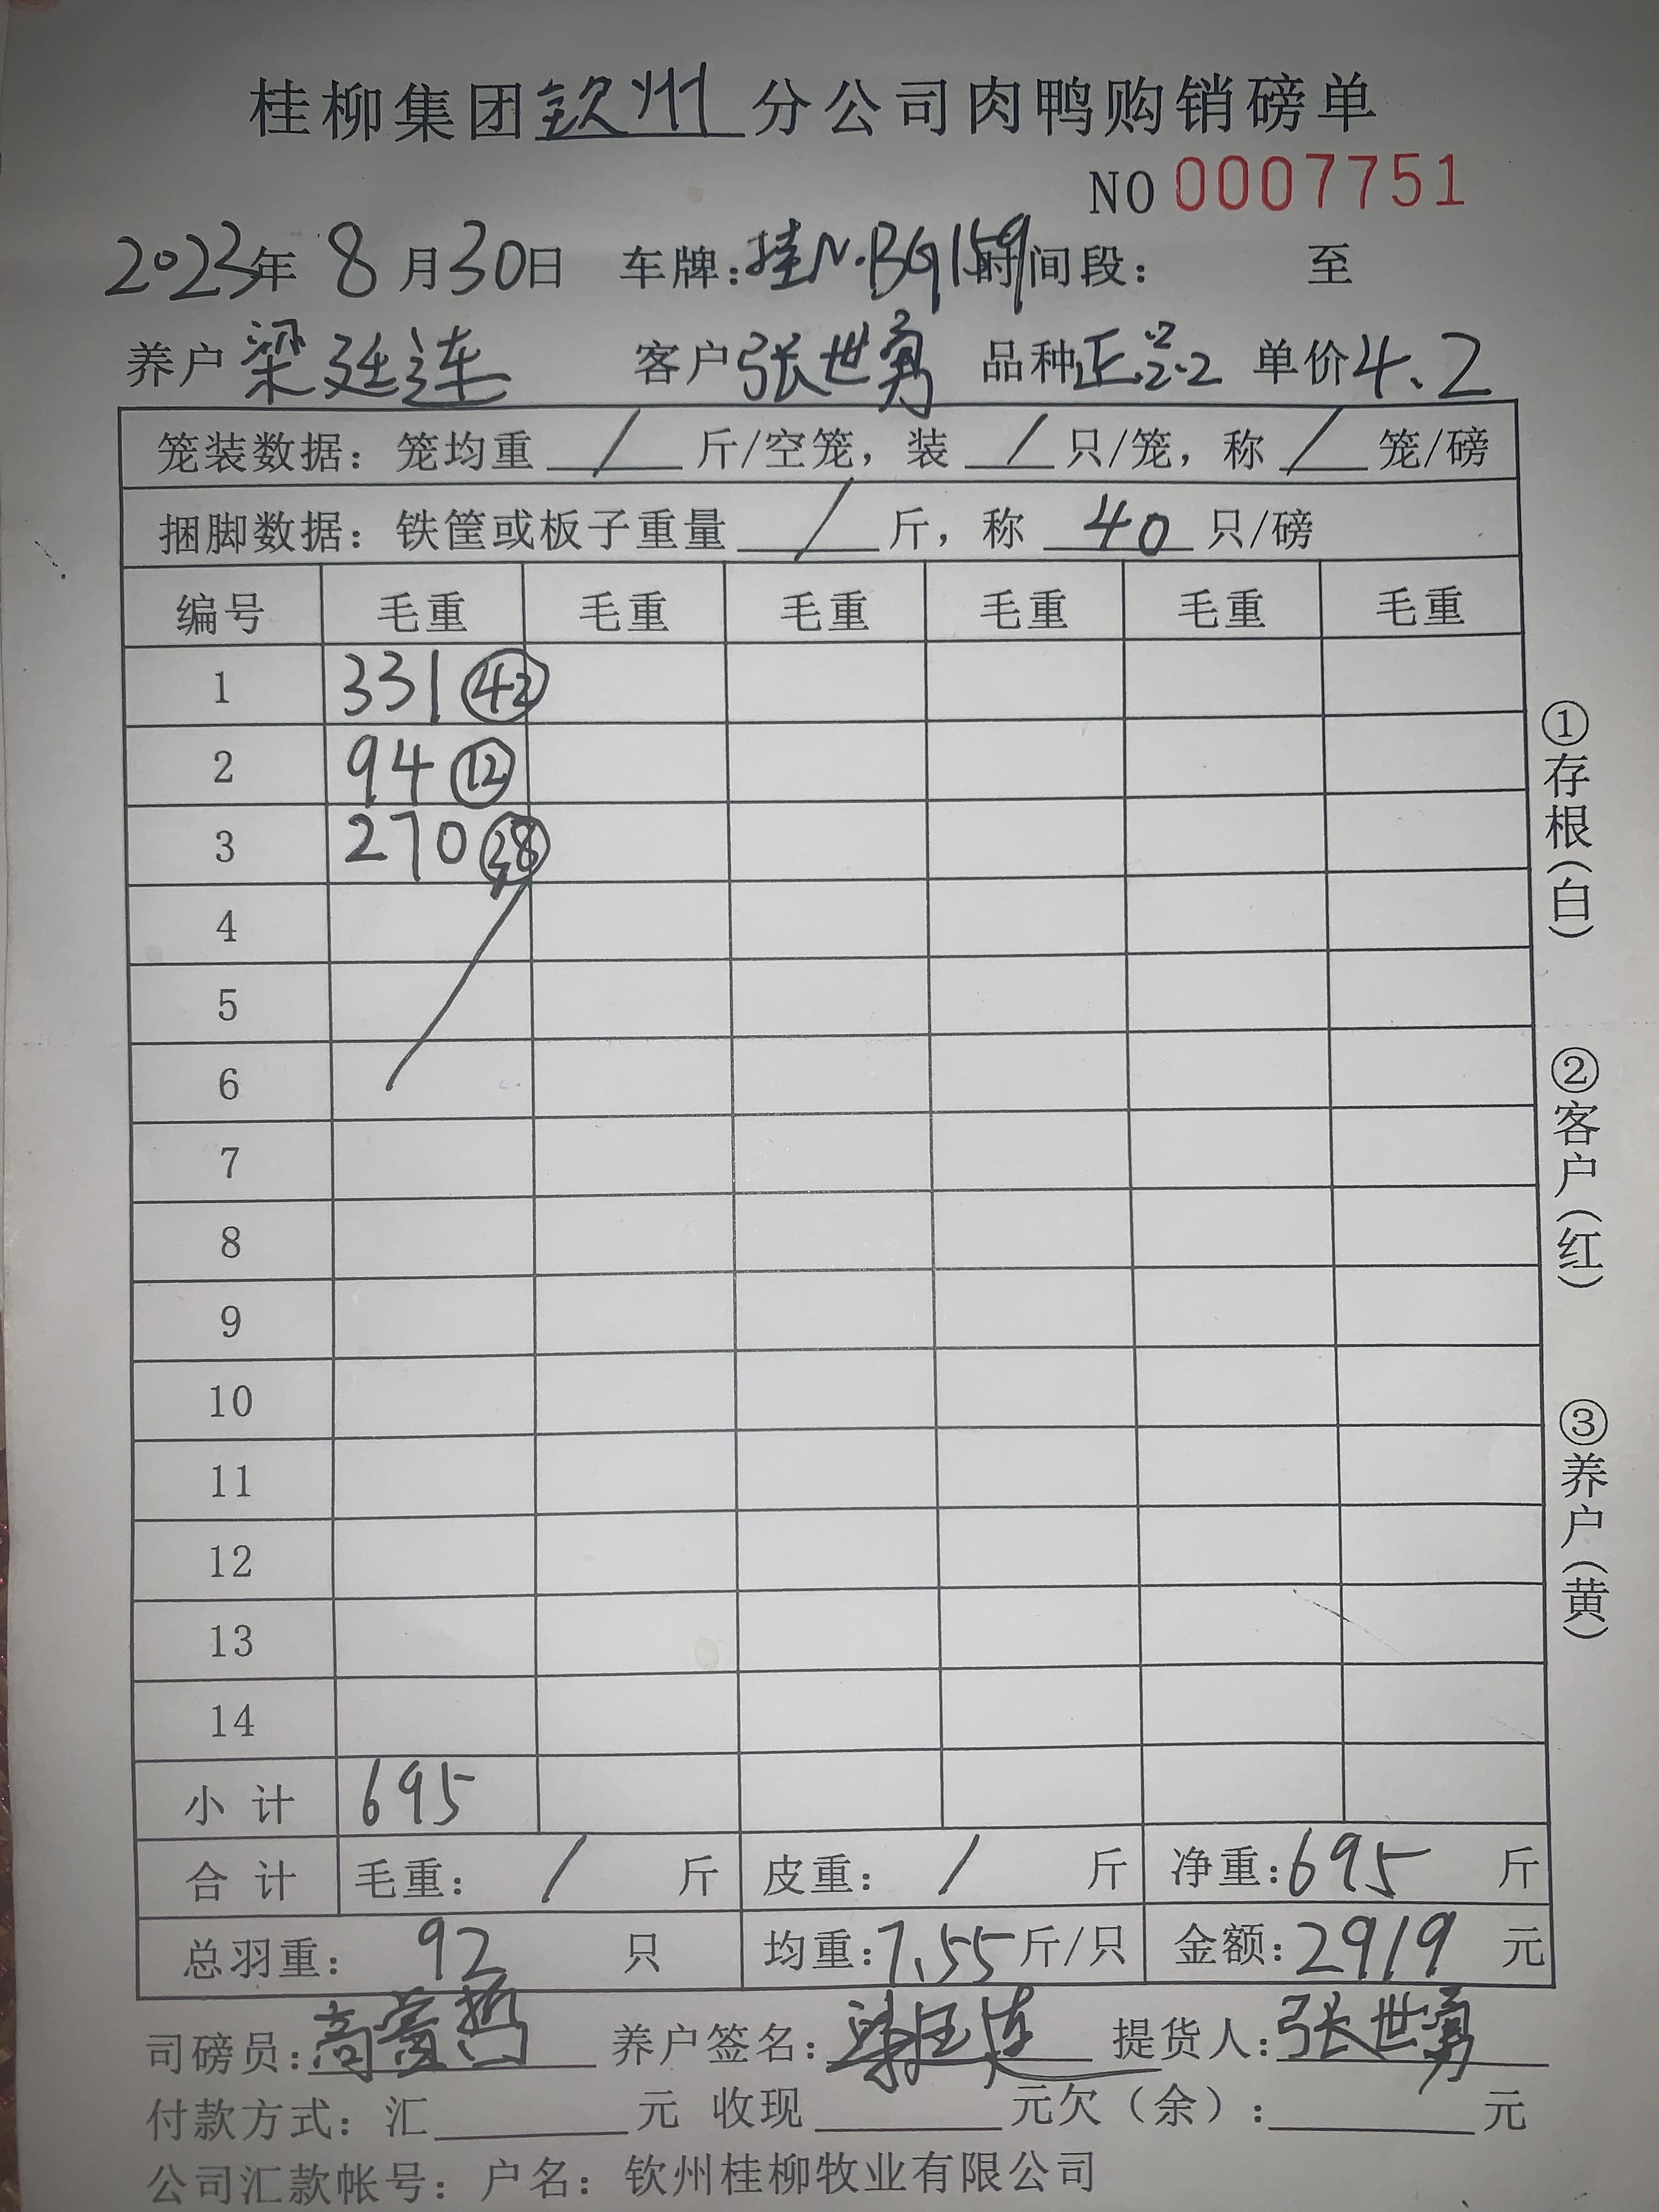 桂柳集团钦州分公司肉鸭购销磅单
NO 0007751
2023年 8月30日 车牌:桂N·BG159时间段: 至
养户 梁廷连 客户 张世勇 品种正品2.2 单价4.2
笼装数据: 笼均重 / 斤/空笼, 装 / 只/笼, 称 / 笼/磅
捆脚数据: 铁筐或板子重量 / 斤, 称 40 只/磅
编号 毛重 毛重 毛重 毛重 毛重 毛重
1 331 ㊷
2 94 ⑫
3 270 ㊳
4
5
6
7
8
9
10
11
12
13
14
小计 695
合计 毛重: / 斤 皮重: / 斤 净重:695 斤
总羽重: 92 只 均重:7.55斤/只 金额:2919 元
司磅员: 养户签名:梁廷连 提货人:张世勇
付款方式: 汇____元 收现____元欠(余):____元
公司汇款帐号: 户名: 钦州桂柳牧业有限公司
①存根(白)
②客户(红)
③养户(黄)